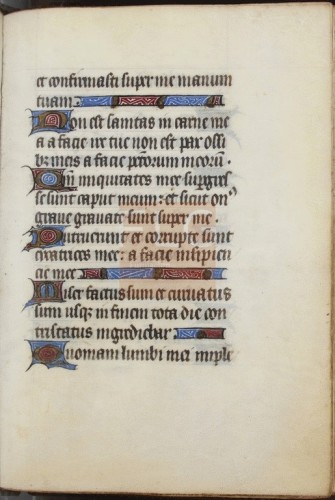 et confirmasti super me manum
tuam
Non est sanitas in carne me
a a facie ire tue non est pax ossi
bz meis a facie pctorum meorũ.
Qm̃ iniquitates mee supgres
se sunt caput meum: et sicut onꝰ
graue grauate sunt super me.
Putruerunt et corrupte sunt
cicatrices mee: a facie insipien
cie mee
Miser factus sum et curuatus
sum usqz in finem tota die con
tristatus ingrediebar
Quoniam lumbi mei implei